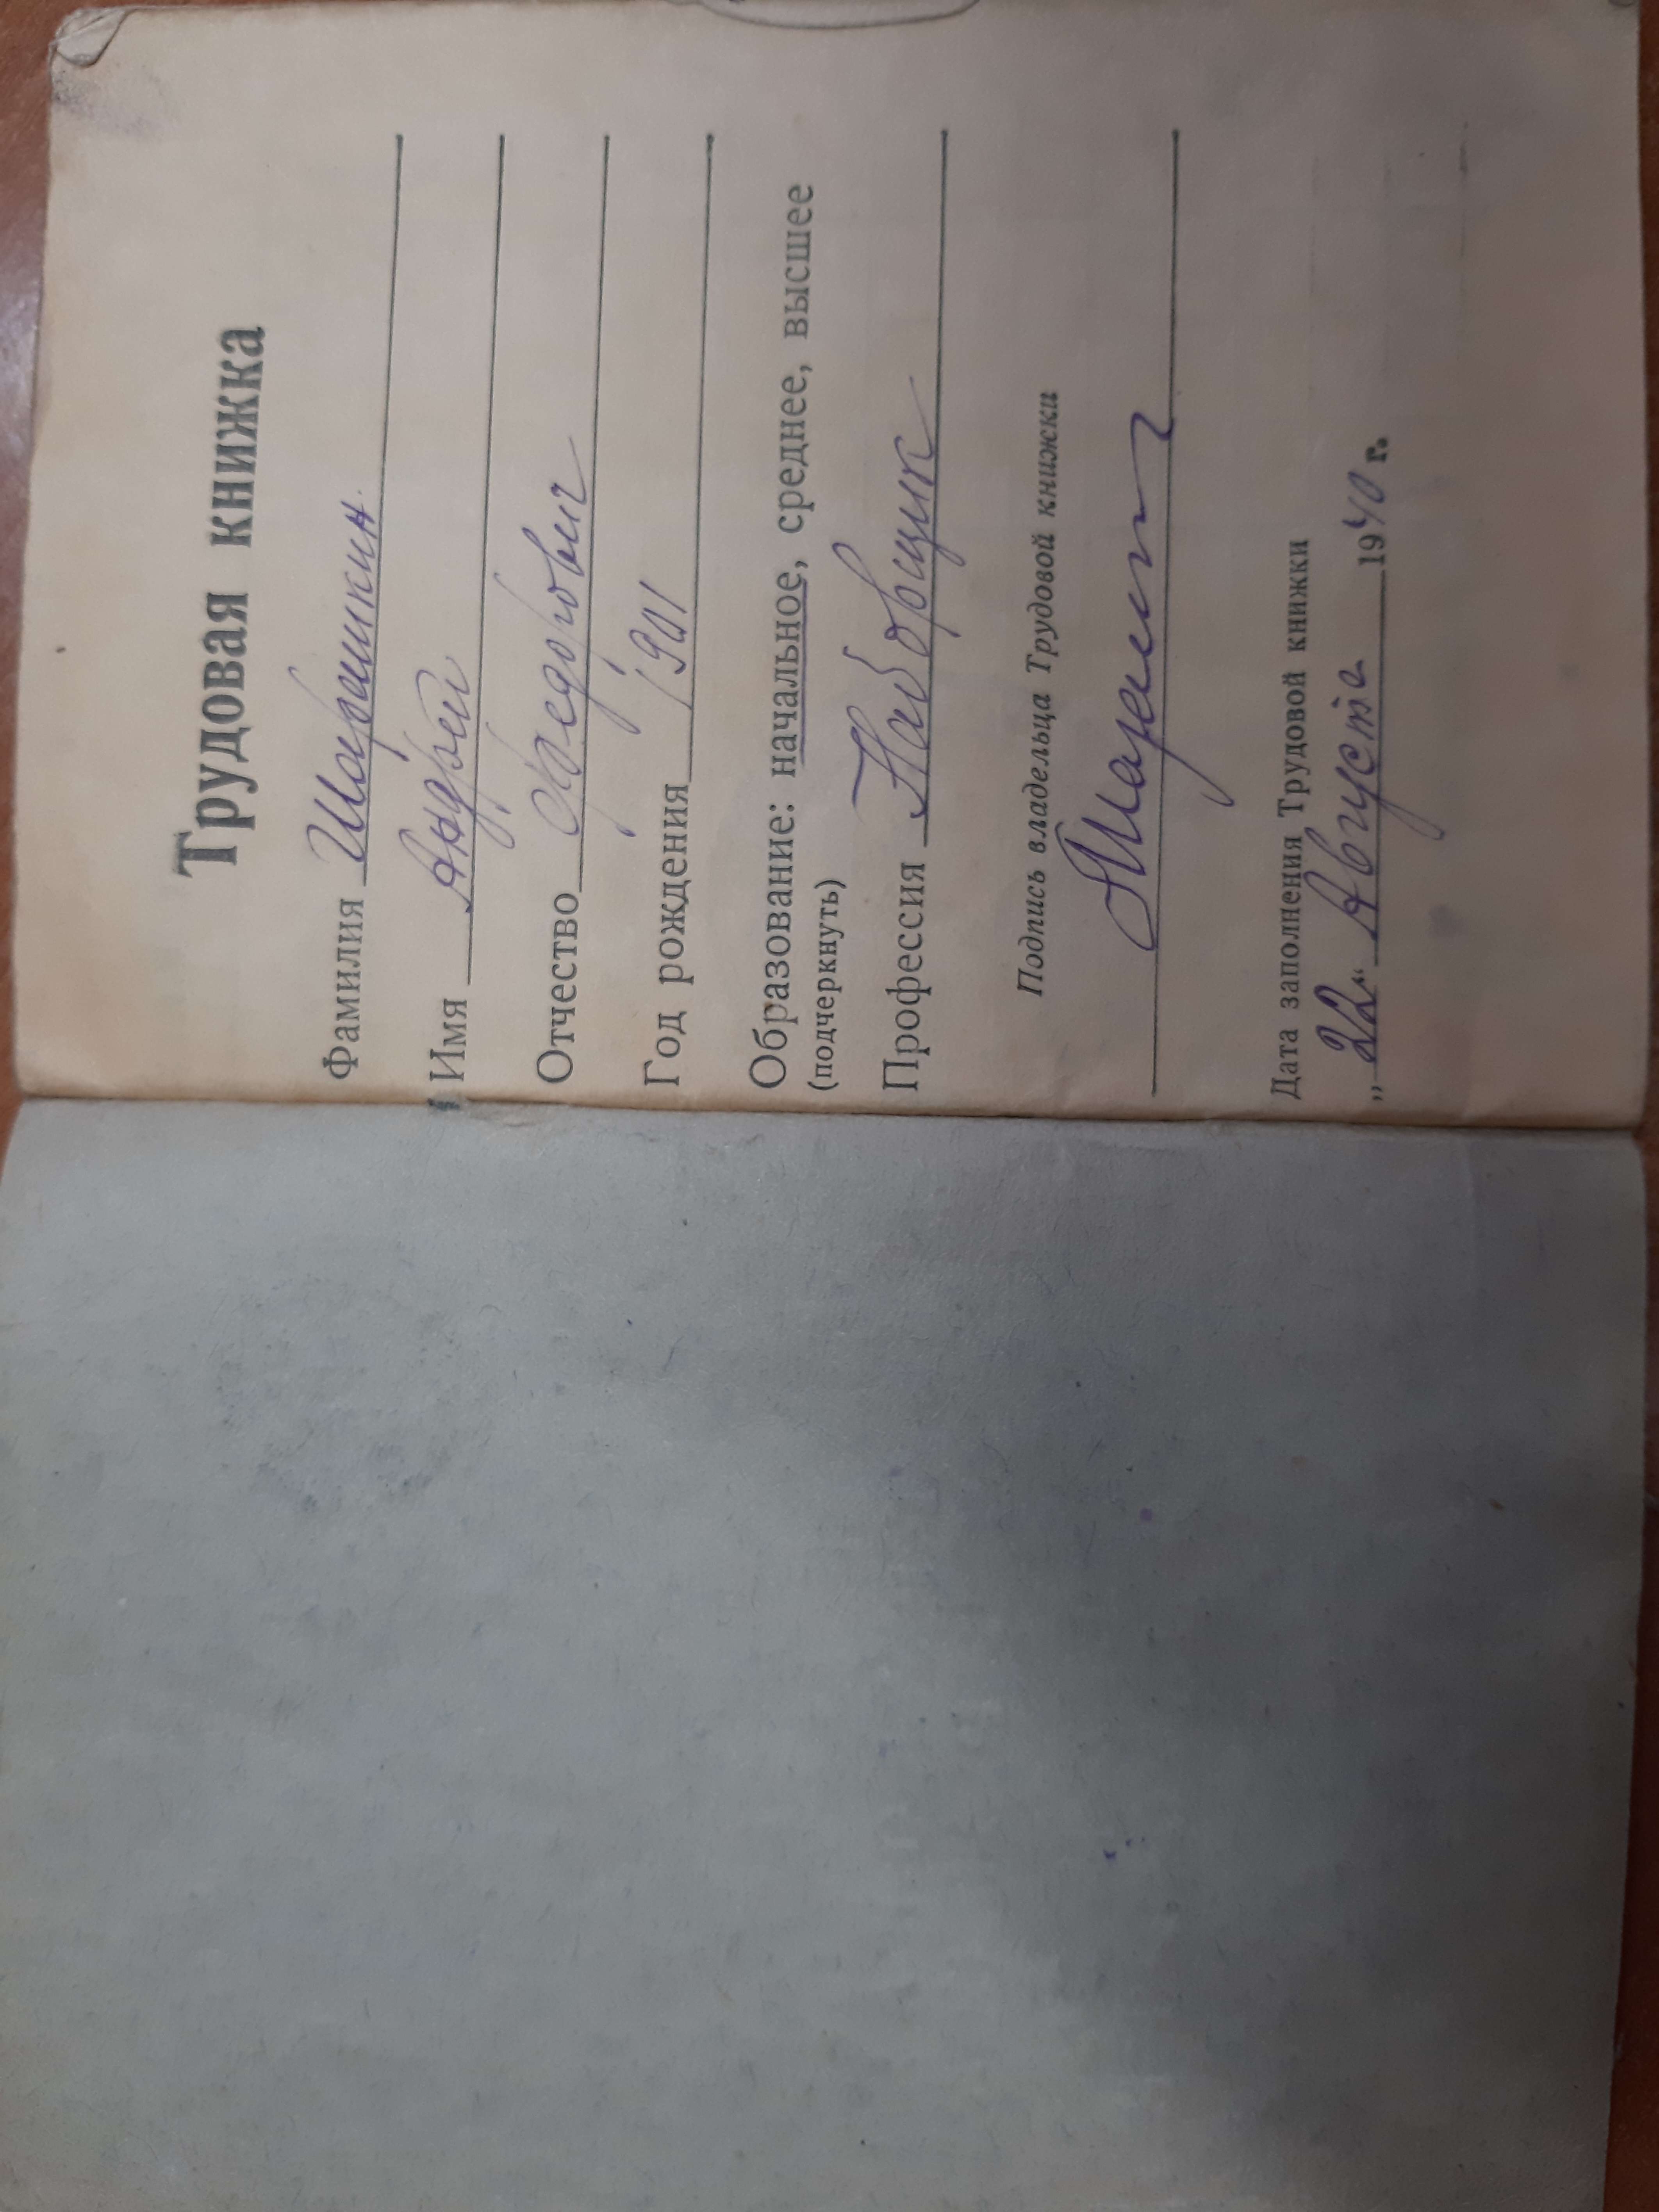 Трудовая книжка
Фамилия Шарашкин
Имя Андрей
Отчество Федорович
Год рождения 1901
Образование: начальное, среднее, высшее
(подчеркнуть)
Профессия Наборщик
Подпись владельца Трудовой книжки
Дата заполнения Трудовой книжки
„22“ Августа 1940 г.